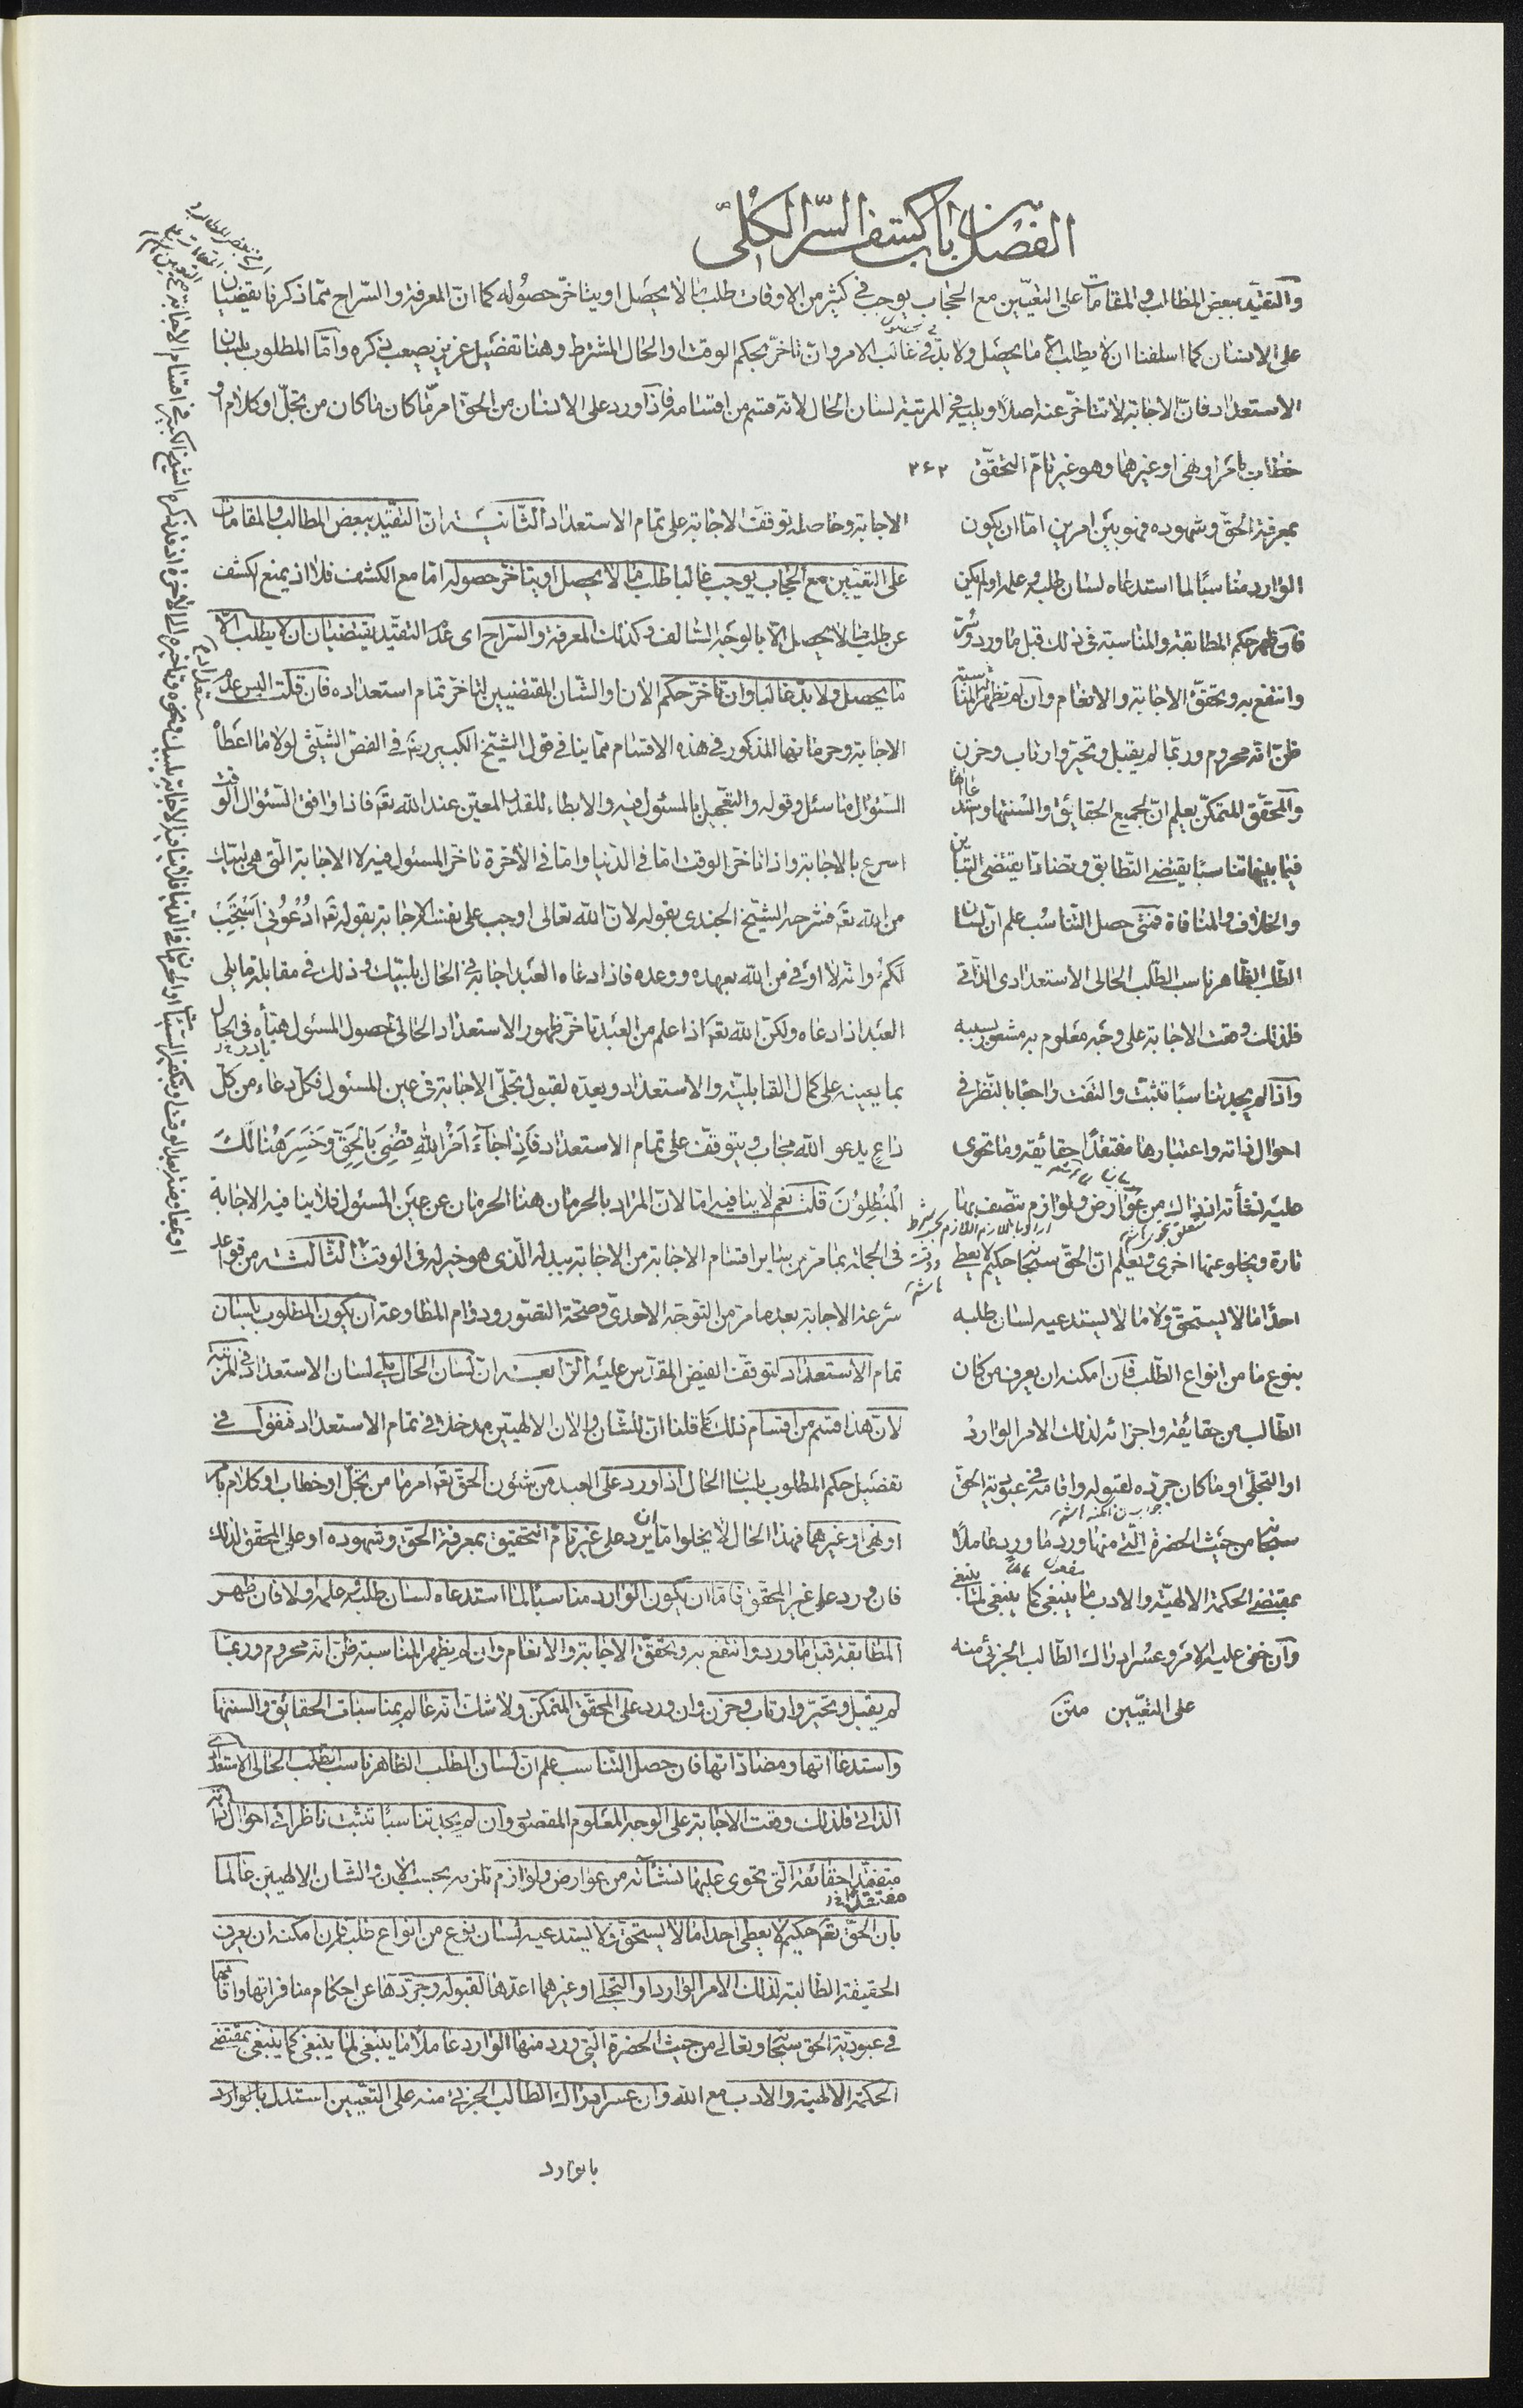 الفصل من باب كشف السّر الكلّى
والتقيّد ببعض المطالب والمقامات على التعيّين مع الحجاب يوجب فى كثير من الاوقات طلب ما لا يحصل او يتاخّر حصوله كما انّ المعرفة والسّراح ممّا ذكرنا يقضيان
على الانسان كما اسلفنا ان لا يطلب الّا ما يحصل ولا بدّ فى غالب الامر وان تاخّر بحكم الوقت او الحال المشترط وهنا تفصيل عزيز يصعب ذكره وامّا المطلوب بلسان
الاستعداد فانّ الاجابة لا تتاخّر عنه اصلا ويليه فى المرتبة لسان الحال لانه قسم من اقسامه فاذا ورد على الانسان من الحقّ امر مّا كان ما كان من تجلّ او كلام او
خطاب بامر او نهى او غيرهما وهو غير تامّ التحقّق ٢٤٢
بمعرفة الحقّ وشهوده فهو بين امرين امّا ان يكون
الوارد مناسبا لما استدعاه لسان طلبه علمه او لم يكن
فان ظهر حكم المطابقة والمناسبة فى ذلك قبل ما ورد وسُرّ
وانتفع به وتحقّق الاجابة والانعام وان لم تظهر المناسبة
ظنّ انّه محروم وربّما لم يقبل وتحيّر وارتاب وحزن
والمحقّق المتمكّن يعلم انّ لجميع الحقايق والسنتها واستدعاآتها
فيما بينها تناسبا يقتضى التطابق وتضادّا يقتضى التباين
والخلاف والمنافاة فمتى حصل التناسب علم انّ لسان
الطلب الظاهر ناسب الطلب الحالى الاستعدادى الذاتى
فلذلك وقعت الاجابة على وجه معلوم به مشعور بسببه
واذا لم يجد تناسبا تثبّت والتفت راجعا بالنظر فى
احوال ذاته واعتبارها مفتقدا حقائقه وما تحوى
عليه نشأته اذ ذاك من عوارض ولوازم تتّصف بها
تارة ويخلو عنها اخرى ويعلم انّ الحقّ سبحانه حكيم لا يعطى
احدا ما لا يستحقّ ولا ما لا يستدعيه لسان طلبه
بنوع ما من انواع الطلب فان امكنه ان يعرف من كان
الطالب من حقائقه واجزائه لذلك الامر الوارد
او التجلّى او ما كان جرّده لقبوله واقامه فى عبوديّة الحقّ
سبحانه من حيث الحضرة الّتى منها ورد ما ورد عاملا
بمقتضى الحكمة الالهيّة والادب ما ينبغى كما ينبغى لما ينبغى
وان خفى عليه الامر وعسر ادراك الطالب الجزئى منه
على التعيّين متن
الاجابة وحاصله توقّف الاجابة على تمام الاستعداد الثانية انّ التقيّد ببعض المطالب والمقامات
على التعيين مع الحجاب يوجب غالبا طلب ما لا يحصل او يتاخّر حصوله امّا مع الكشف فلا اذ يمنع الكشف
عن طلب ما لا يحصل الّا بالوجه السالف وكذلك المعرفة والسّراح اى عدم التقيّد يقتضيان ان لا يطلب الّا
ما يحصل ولا بدّ غالبا وان تاخّر حكم الان والشأن المقتضيين لتاخّر تمام استعداده فان قلت اليس عدم
الاجابة وحرمانها المذكور فى هذه الاقسام ممّا ينافى قول الشيخ الكبير رضه فى الفصّ الشيثى لولا ما اعطاه
السّؤال ما سئل وقوله والتعجيل بالمسئول فيه والابطاء للقدر المعيّن عند الله تعه فاذا وافق السّؤال الوقت
اسرع بالاجابة واذا تاخّر الوقت امّا فى الدنيا وامّا فى الآخرة تاخّر المسئول فيه لا الاجابة الّتى هى لبّيك
من الله تعه فشرحه الشيخ الجندى بقوله لانّ الله تعالى اوجب على نفسه الاجابة بقوله تعه اُدْعُونِى اَسْتَجِبْ
لَكُمْ وانّه لا اوفى من الله بعهده ووعده فاذا دعاه العبد اجابه فى الحال بلبّيك وذلك فى مقابلة ما يلى
العبد اذا دعاه ولكنّ الله تعه اذا علم من العبد تاخّر ظهور الاستعداد الحالى لحصول المسئول هيّأه فى الحال
بما يعينه على كمال القابليّة والاستعداد ويعدّه لقبول تجلّى الاجابة فى عين المسئول فكلّ دعاء من كلّ
داع يدعو الله مجاب ويتوقّف على تمام الاستعداد فَاِذا جَآءَ اَمْرُ اللهِ قُضِىَ بِالْحَقِّ وَخَسِرَ هُنالِكَ
الْمُبْطِلُونَ قلت نعم لا ينافيه امّا لانّ المراد بالحرمان هنا الحرمان عن عين المسئول فلا ينافيه الاجابة
فى الجملة بما مرّ من ساير اقسام الاجابة من الاجابة ببدله الّذى هو خير له فى الوقت الثالثة من قواعد
سرعة الاجابة بعد ما مرّ من التوجّه الاحدى وصحّة التصوّر ودوام المطاوعة ان يكون المطلوب بلسان
تمام الاستعداد لتوقّف الفيض المقدّس عليه الرابعة انّ لسان الحال يلى لسان الاستعداد فى المرتبة
لانّ هذا قسم من اقسام ذلك كما قلنا انّ للشّان والان الالهيّين مدخلا فى تمام الاستعداد فنقول فى
تفصيل حكم المطلوب بلسان الحال اذا ورد على العبد من شئون الحقّ تعه امر ما من تجلّ او خطاب او كلام بامر
او نهى او غيرهما فهذا الحال لا يخلو امّا ان يرد على غير تامّ التحقيق بمعرفة الحقّ وشهوده او على المحقّق لذلك
فان ورد على غير المحقّق فامّا ان يكون الوارد مناسبا لما استدعاه لسان طلبه علمه اولا فان ظهر
المطابقة قبل ما ورد وانتفع به وتحقّق الاجابة والانعام وان لم يظهر المناسبة ظنّ انّه محروم وربّما
لم يقبل وتحيّر وارتاب وحزن وان ورد على المحقّق المتمكّن ولا شكّ انّه عالم بمناسبات الحقائق والسنتها
واستدعاآتها ومضادّاتها فان حصل التناسب علم انّ لسان الطلب الظاهر ناسب الطلب الحالى الاستعدادى
الذاتى فلذلك وقعت الاجابة على الوجه المعلوم المقصود وان لم يجد تناسبا تثبّت ناظرا فى احوال ذاته
متفقّدا حقائقه الّتى تحوى عليها نشآته من عوارض ولوازم تلزمه بحسب الان والشّان الالهيّين عالما
بانّ الحقّ تعه حكيم لا يعطى احدا ما لا يستحقّ ولا يستدعيه لسان نوع من انواع طلبه فان امكنه ان يعرف
الحقيقة الطالبة لذلك الامر الوارد او التجلّى او غيرهما اعدّها لقبوله وجرّدها عن احكام منافراتها واقامها
فى عبوديّة الحقّ سبحانه وتعالى من حيث الحضرة الّتى ورد منها الوارد عاملا ما ينبغى لما ينبغى كما ينبغى بمقتضى
الحكمة الالهيّة والادب مع الله وان عسر ادراك الطالب الجزئى منه على التعيين استدلّ بالوارد
بالوارد